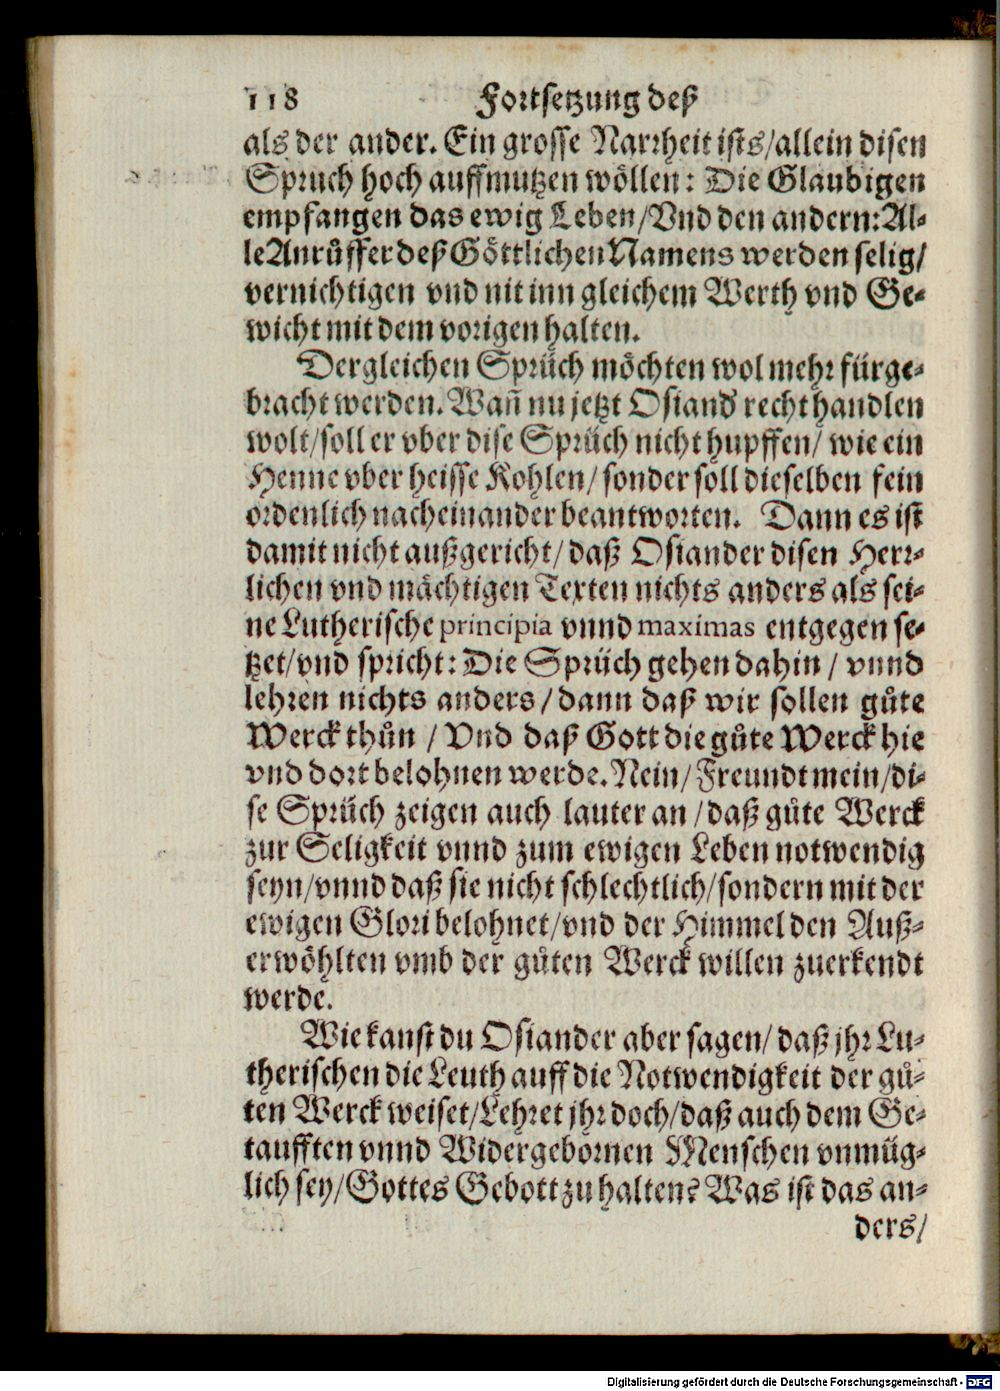 118 Fortsetzung deß
als der ander. Ein grosse Narrheit ists/allein disen
Spruch hoch auffmutzen wöllen: Die Glaubigen
empfangen das ewig Leben/Vnd den andern: Al-
le Anrůffer deß Göttlichen Namens werden selig/
vernichtigen vnd nit inn gleichem Werth vnd Ge-
wicht mit dem vorigen halten.
Dergleichen Sprüch möchten wol mehr fürge-
bracht werden. Wañ nu jetzt Osiand recht handlen
wolt/soll er vber dise Sprüch nicht hupffen/ wie ein
Henne vber heisse Kohlen/ sonder soll dieselben fein
ordenlich nacheinander beantworten. Dann es ist
damit nicht außgericht/ daß Osiander disen Herr-
lichen vnd mächtigen Texten nichts anders als sei-
ne Lutherische principia vnnd maximas entgegen se-
tzet/vnd spricht: Die Sprüch gehen dahin / vnnd
lehren nichts anders / dann daß wir sollen gůte
Werck thůn / Vnd daß Gott die gůte Werck hie
vnd dort belohnen werde. Nein/ Freundt mein/di-
se Sprüch zeigen auch lauter an / daß gůte Werck
zur Seligkeit vnnd zum ewigen Leben notwendig
seyn/vnnd daß sie nicht schlechtlich/sondern mit der
ewigen Glori belohnet/vnd der Himmel den Auß-
erwöhlten vmb der gůten Werck willen zuerkendt
werde.
Wie kanst du Osiander aber sagen/ daß jhr Lu-
therischen die Leuth auff die Notwendigkeit der gů-
ten Werck weiset/Lehret jhr doch/daß auch dem Ge-
taufften vnnd Widergebornen Menschen vnmüg-
lich sey/Gottes Gebott zu halten? Was ist das an-
ders/
Digitalisierung gefördert durch die Deutsche Forschungsgemeinschaft - DFG